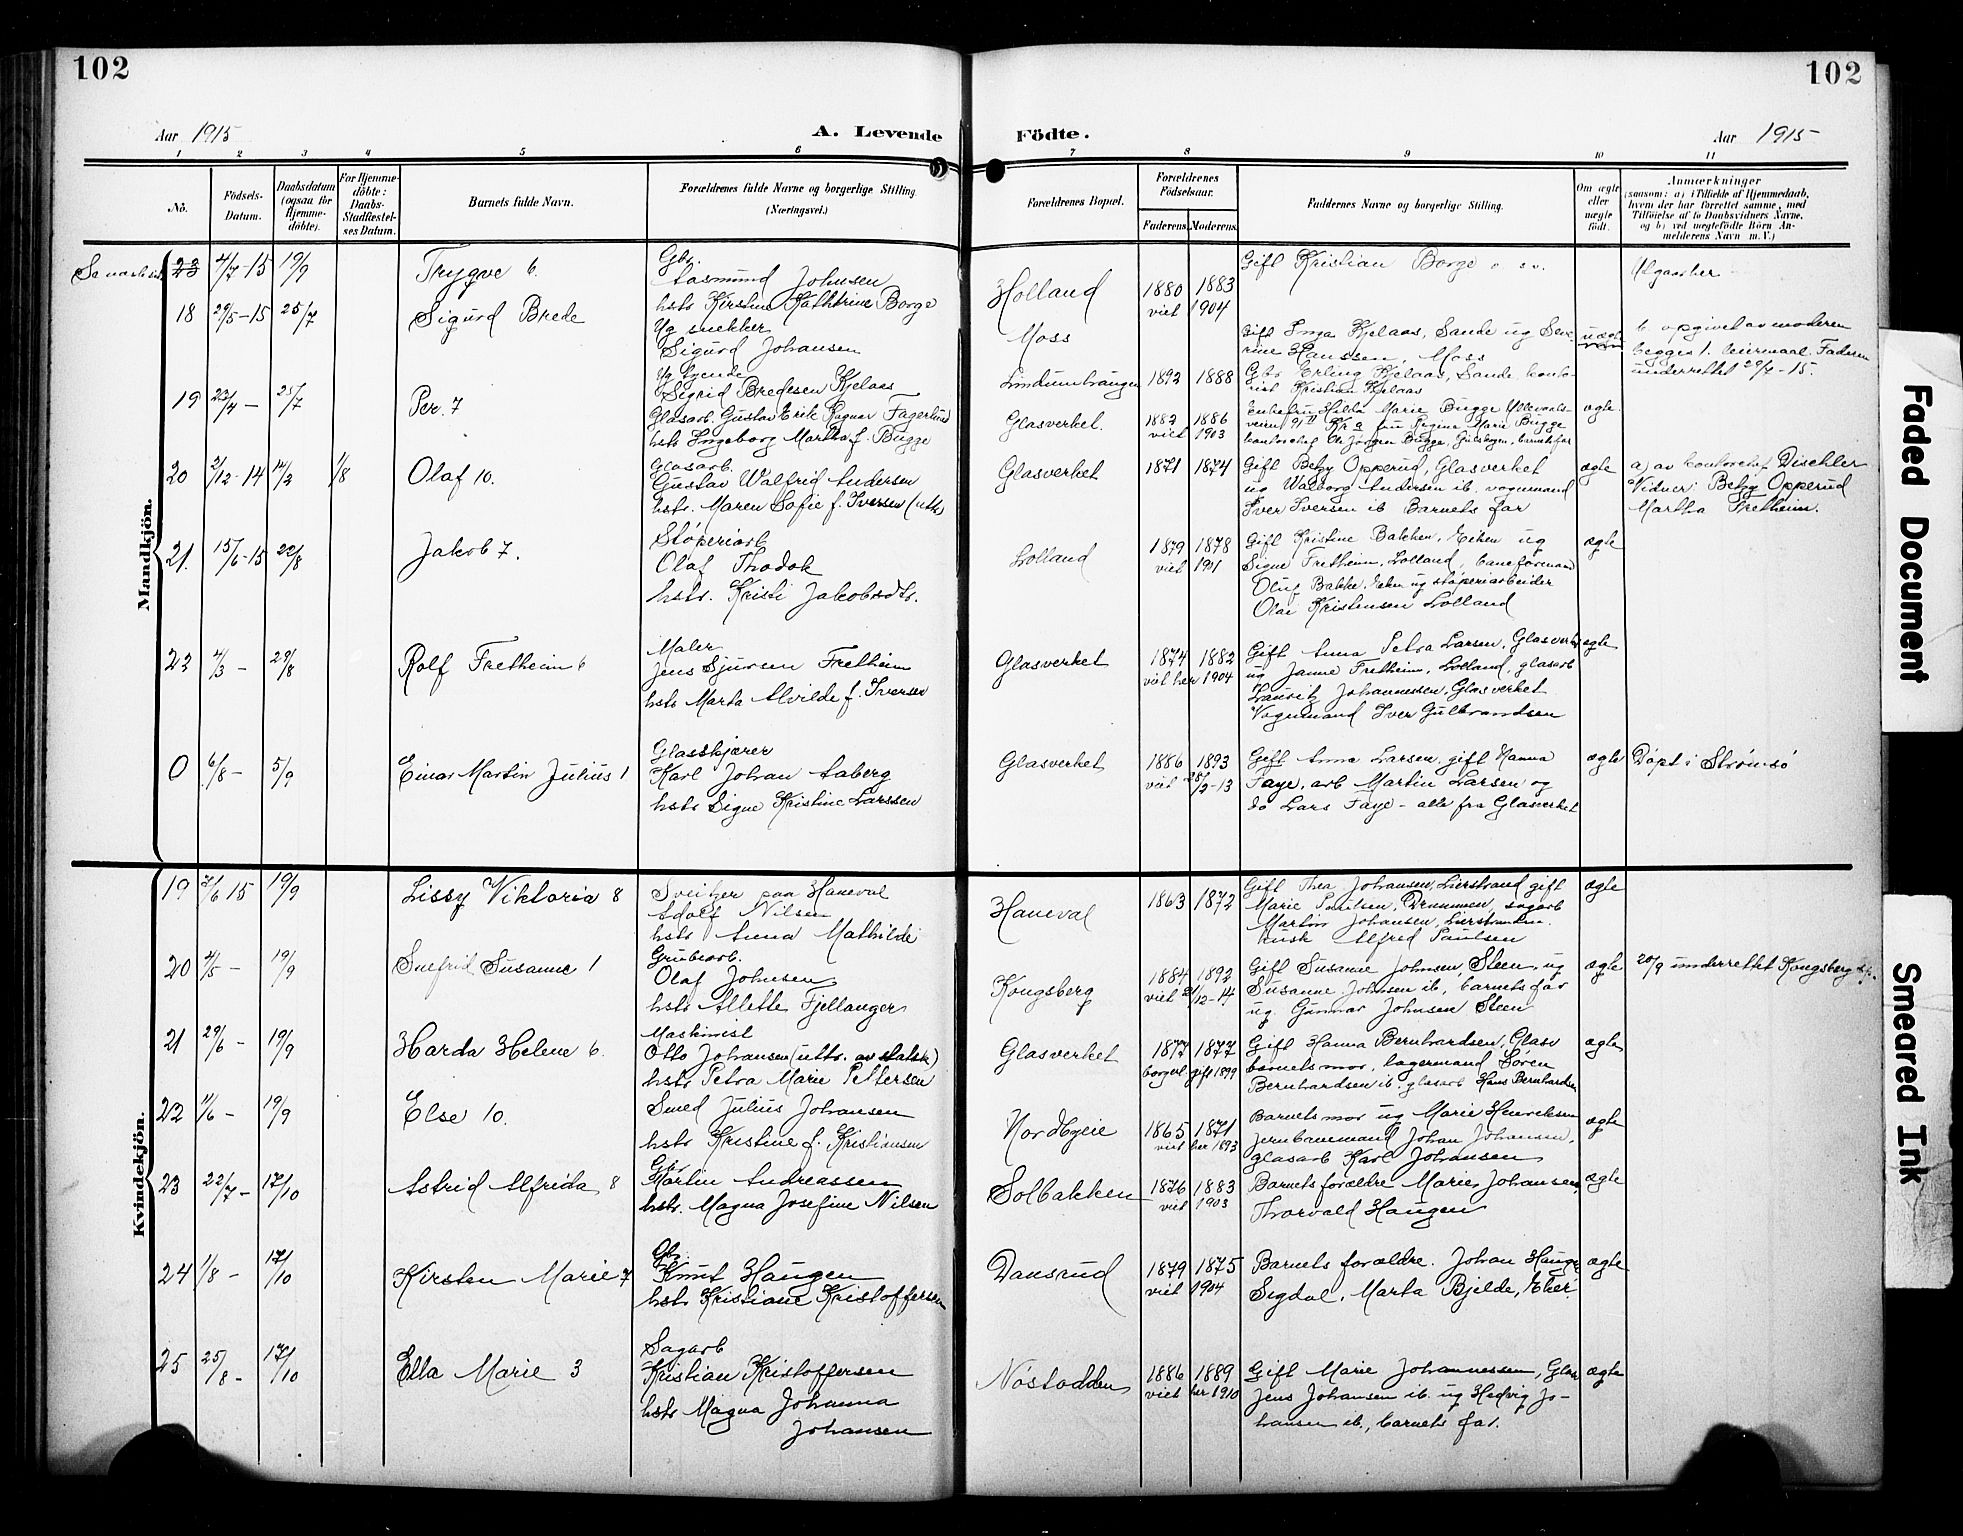 102
102
Aar 1915
A. Levende
Födte.
Aar 1915
1 2 3 4 5 6 7 8 9 10 11
No.
Födsels-Datum.
Daabsdatum (ogsaa for Hjemme-döbte).
For Hjemme-döbte: Daabs-Stadfæstel-ses Datum.
Barnets fulde Navn.
Forældrenes fulde Navne og borgerlige Stilling. (Næringsvei.)
Forældrenes Bopæl.
Forældrenes Födselsaar.
Faderens. Moderens.
Faddernes Navne og borgerlige Stilling.
Om ægte eller uægte födt.
Anmærkninger
(saasom: a) i Tilfælde af Hjemmedaab, hvem der har forrettet samme, med Tilföielse af to Daabsvidners Navne, og b) ved uægtefödte Börn Anmelderens Navn m. V.)
Mandkjön.
23 4/7-15 19/9 Trygve 6.
Gbr.
Aasmund Johnsen
hstr Kirstine Kathrine Borge
Holland 1880 1883
viet 1904
Gift Kristian Borge
18 29/5-15 25/7 Sigurd Brede
Ug snekker
Sigurd Johansen
Ug tjende
Sigrid Bredesen Kjelaas
Moss
1892 1888
Gift Inga Kjelaas, Sande ug Seve-
rine Hanssen, Moss
Gbr Erling Kjelaas, Sande, konto-
rist Kristian Kjelaas
uægte
b. opgivet av moderen
begges 1. leiermaal. Faderen
underrettet 29/7-15.
19 23/4 - 25/7 Per. 7
Glasarb. Gustav Erik Ragnar Fagerlund
hstr Ingeborg Martha f. Bugge
Glasverket. 1882 1886
viet 1903
Enkefru Hilda Marie Bugge Ullevaals-
veien 91 II Kr.a fru Regina Marie Bugge
ægte
20 2/12-14 14/2 1/8 Olaf 10.
Glasarb.
Gustav Walfrid Andersen
hstr. Maren Sofie f. Iversen
Glasverket 1871 1874
Gift Betzy Opperud, Glasverket
ug Walborg Andersen ib. vognmand
Iver Iversen ib Barnets far
ægte
a) av kontorchef Dischler
Vidner: Betzy Opperud
Martha Fretheim.
21. 15/6-15 22/8 Jakob 7.
Støperiarb
Olaf Thodok
hstr. Kristi Jakobsdtr.
Lolland 1879 1878
viet 1901
Gift Kristine Bakken, Eiken ug
Signe Fretheim, Lolland, baneformand
Oluf Bakke, Eken ug støperiarbeider
Olai Kristensen Lolland
ægte
22 4/3 - 29/8 Rolf Fretheim 6
Maler
Jens Sjursen Fretheim
hstr Marta Alvilde f. Iversen
Glasverket 1874 1882
viet her 1904
Gift Anna Petra Larsen, Glasverket
ug Janne Fretheim, Lolland, glasarb
Lauritz Johannessen, Glasverket
Vognmand Iver Gulbrandsen
ægte
0 6/8 - 5/9 Einar Martin Julius 1
Glasskjærer
Karl Johan Aaberg
hstr Signe Kristine Larssen
Glasverket 1886 1893
viet 25/2-13
Gift Anna Larsen, gift Hanna
Faye, arb Martin Larsen og
do Lars Faye - alle fra Glasverket
ægte
Døpt i Strømsø
Kvindekjön.
19 7/6 15 19/9 Lissy Viktoria 8
Sveitzer paa Haneval
Adolf Nilsen
hstr Anna Mathilde
Haneval 1863 1872
Gift Thea Johansen, Lierstrand gift
Marie Paulsen, Drammen, sagarb
Martin Johansen, Lierstranden.
kusk Alfred Paulsen
ægte
20 4/5 - 19/9 Snefrid Susanne 1
Grubearb.
Olaf Johnsen
hstr Allette Fjellanger
Kongsberg 1884 1892
viet 21/12-14
Gift Susanne Johnsen, Steen, ug
Susanne Johnsen ib, barnets far
ug. Gunnar Johnsen Steen
ægte
20/9 underrettet Kongsberg
21 29/6 - 19/9 Harda Helene 6.
Maskinist
Otto Johansen (uttr. av statsk)
hstr Petra Marie Pettersen
Glasverket 1877 1877
borgerl. gift 1899
Gift Hanna Bernhardsen, Glasv
barnets mor, lagermand Søren
Bernhardsen ib, glasarb Hans Bernhardsen
ægte
22 11/6 - 19/9 Else 10.
Smed Julius Johansen
hstr Kristine f. Kristiansen
Nordbyeie 1865 1871
viet her 1893
Barnets mor ug Marie Henriksen
jernbanemand Johan Johansen,
glasarb Karl Johansen
ægte
23 22/7 - 17/10 Astrid Alfrida 8
Gbr
Martin Andreassen
hstr. Magna Josefine Nilsen
Solbakken 1876 1883
viet 1903
Barnets forældre Marie Johansen,
Thorvald Haugen
ægte
24 1/8 - 17/10 Kirsten Marie 7
Gbr.
Knut Haugen
hstr Kristiane Kristoffersen
Dansrud 1879 1875
viet 1904
Barnets forældre. Johan Hauge
Sigdal, Marta Bjelde, Eker
ægte
25 25/8 - 17/10 Ella Marie 3
Sagarb
Kristian Kristoffersen
hstr Magna Johanna
Johansen
Nøstodden 1886 1889
viet her 1910
Gift Marie Johannessen, Glasv
Jens Johansen ib. ug Hedvig Jo-
hansen ib., barnets far.
ægte
Faded Document
Smeared Ink